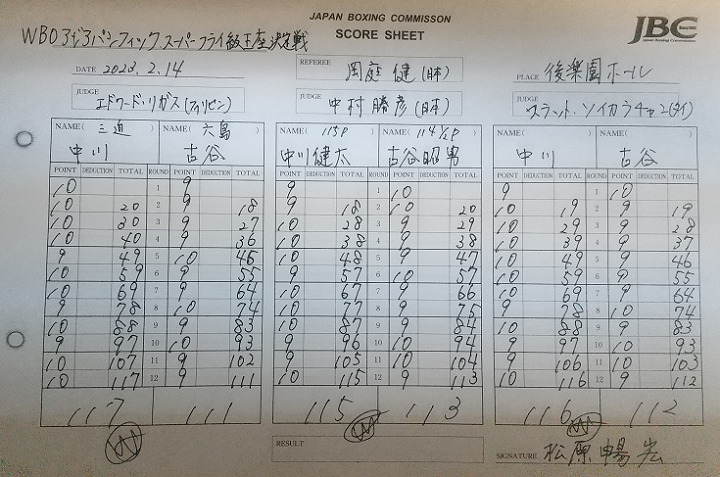 JAPAN BOXING COMMISSON
SCORE SHEET
JBC
Japan Boxing Commission
WBOアジアパシフィックスーパーフライ級王座決定戦
DATE 2023.2.14
REFEREE 岡庭 健(日本)
PLACE 後楽園ホール
JUDGE エドワード・リガス(フィリピン)
JUDGE 中村勝彦(日本)
JUDGE スラット・ソイカラチャン(タイ)
NAME( 三迫 ) NAME( 六島 ) NAME( 115P ) NAME( 114½P ) NAME( ) NAME( )
中川 古谷 中川健太 古谷昭男 中川 古谷
POINT DEDUCTION TOTAL ROUND POINT DEDUCTION TOTAL POINT DEDUCTION TOTAL ROUND POINT DEDUCTION TOTAL POINT DEDUCTION TOTAL ROUND POINT DEDUCTION TOTAL
10 1 9 9 1 10 9 1 10
10 20 2 9 18 9 18 2 10 20 10 19 2 9 19
10 30 3 9 27 10 28 3 9 29 10 29 3 9 28
10 40 4 9 36 10 38 4 9 38 10 39 4 9 37
9 49 5 10 46 10 48 5 9 47 10 49 5 9 46
10 59 6 9 55 9 57 6 10 57 10 59 6 9 55
10 69 7 9 64 10 67 7 9 66 10 69 7 9 64
9 78 8 10 74 10 77 8 9 75 9 78 8 10 74
10 88 9 9 83 10 87 9 9 84 10 88 9 9 83
9 97 10 10 93 9 96 10 10 94 9 97 10 10 93
10 107 11 9 102 9 105 11 10 104 9 106 11 10 103
10 117 12 9 111 10 115 12 9 113 10 116 12 9 112
117 111 115 113 116 112
W W W
RESULT
SIGNATURE 松原暢宏